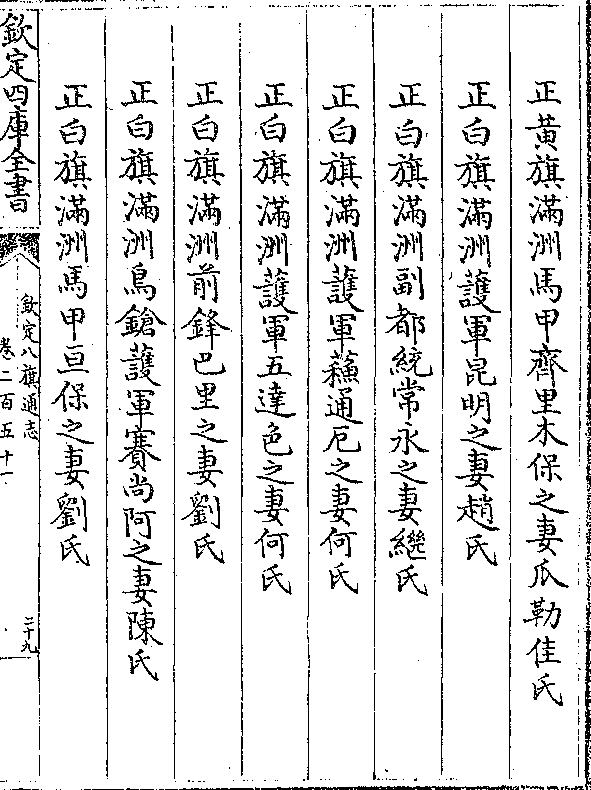 正黃旗滿洲馬甲齊里木保之妻瓜勒佳氏
正白旗滿洲護軍昆明之妻趙氏
正白旗滿洲副都統常永之妻繼氏
正白旗滿洲護軍蘓通厄之妻何氏
正白旗滿洲護軍五達色之妻何氏
正白旗滿洲前鋒巴里之妻劉氏
正白旗滿洲鳥鎗護軍賽尚阿之妻陳氏
正白旗滿洲馬甲亘保之妻劉氏
欽定四庫全書
欽定八旗通志
卷二百五十一
二十九